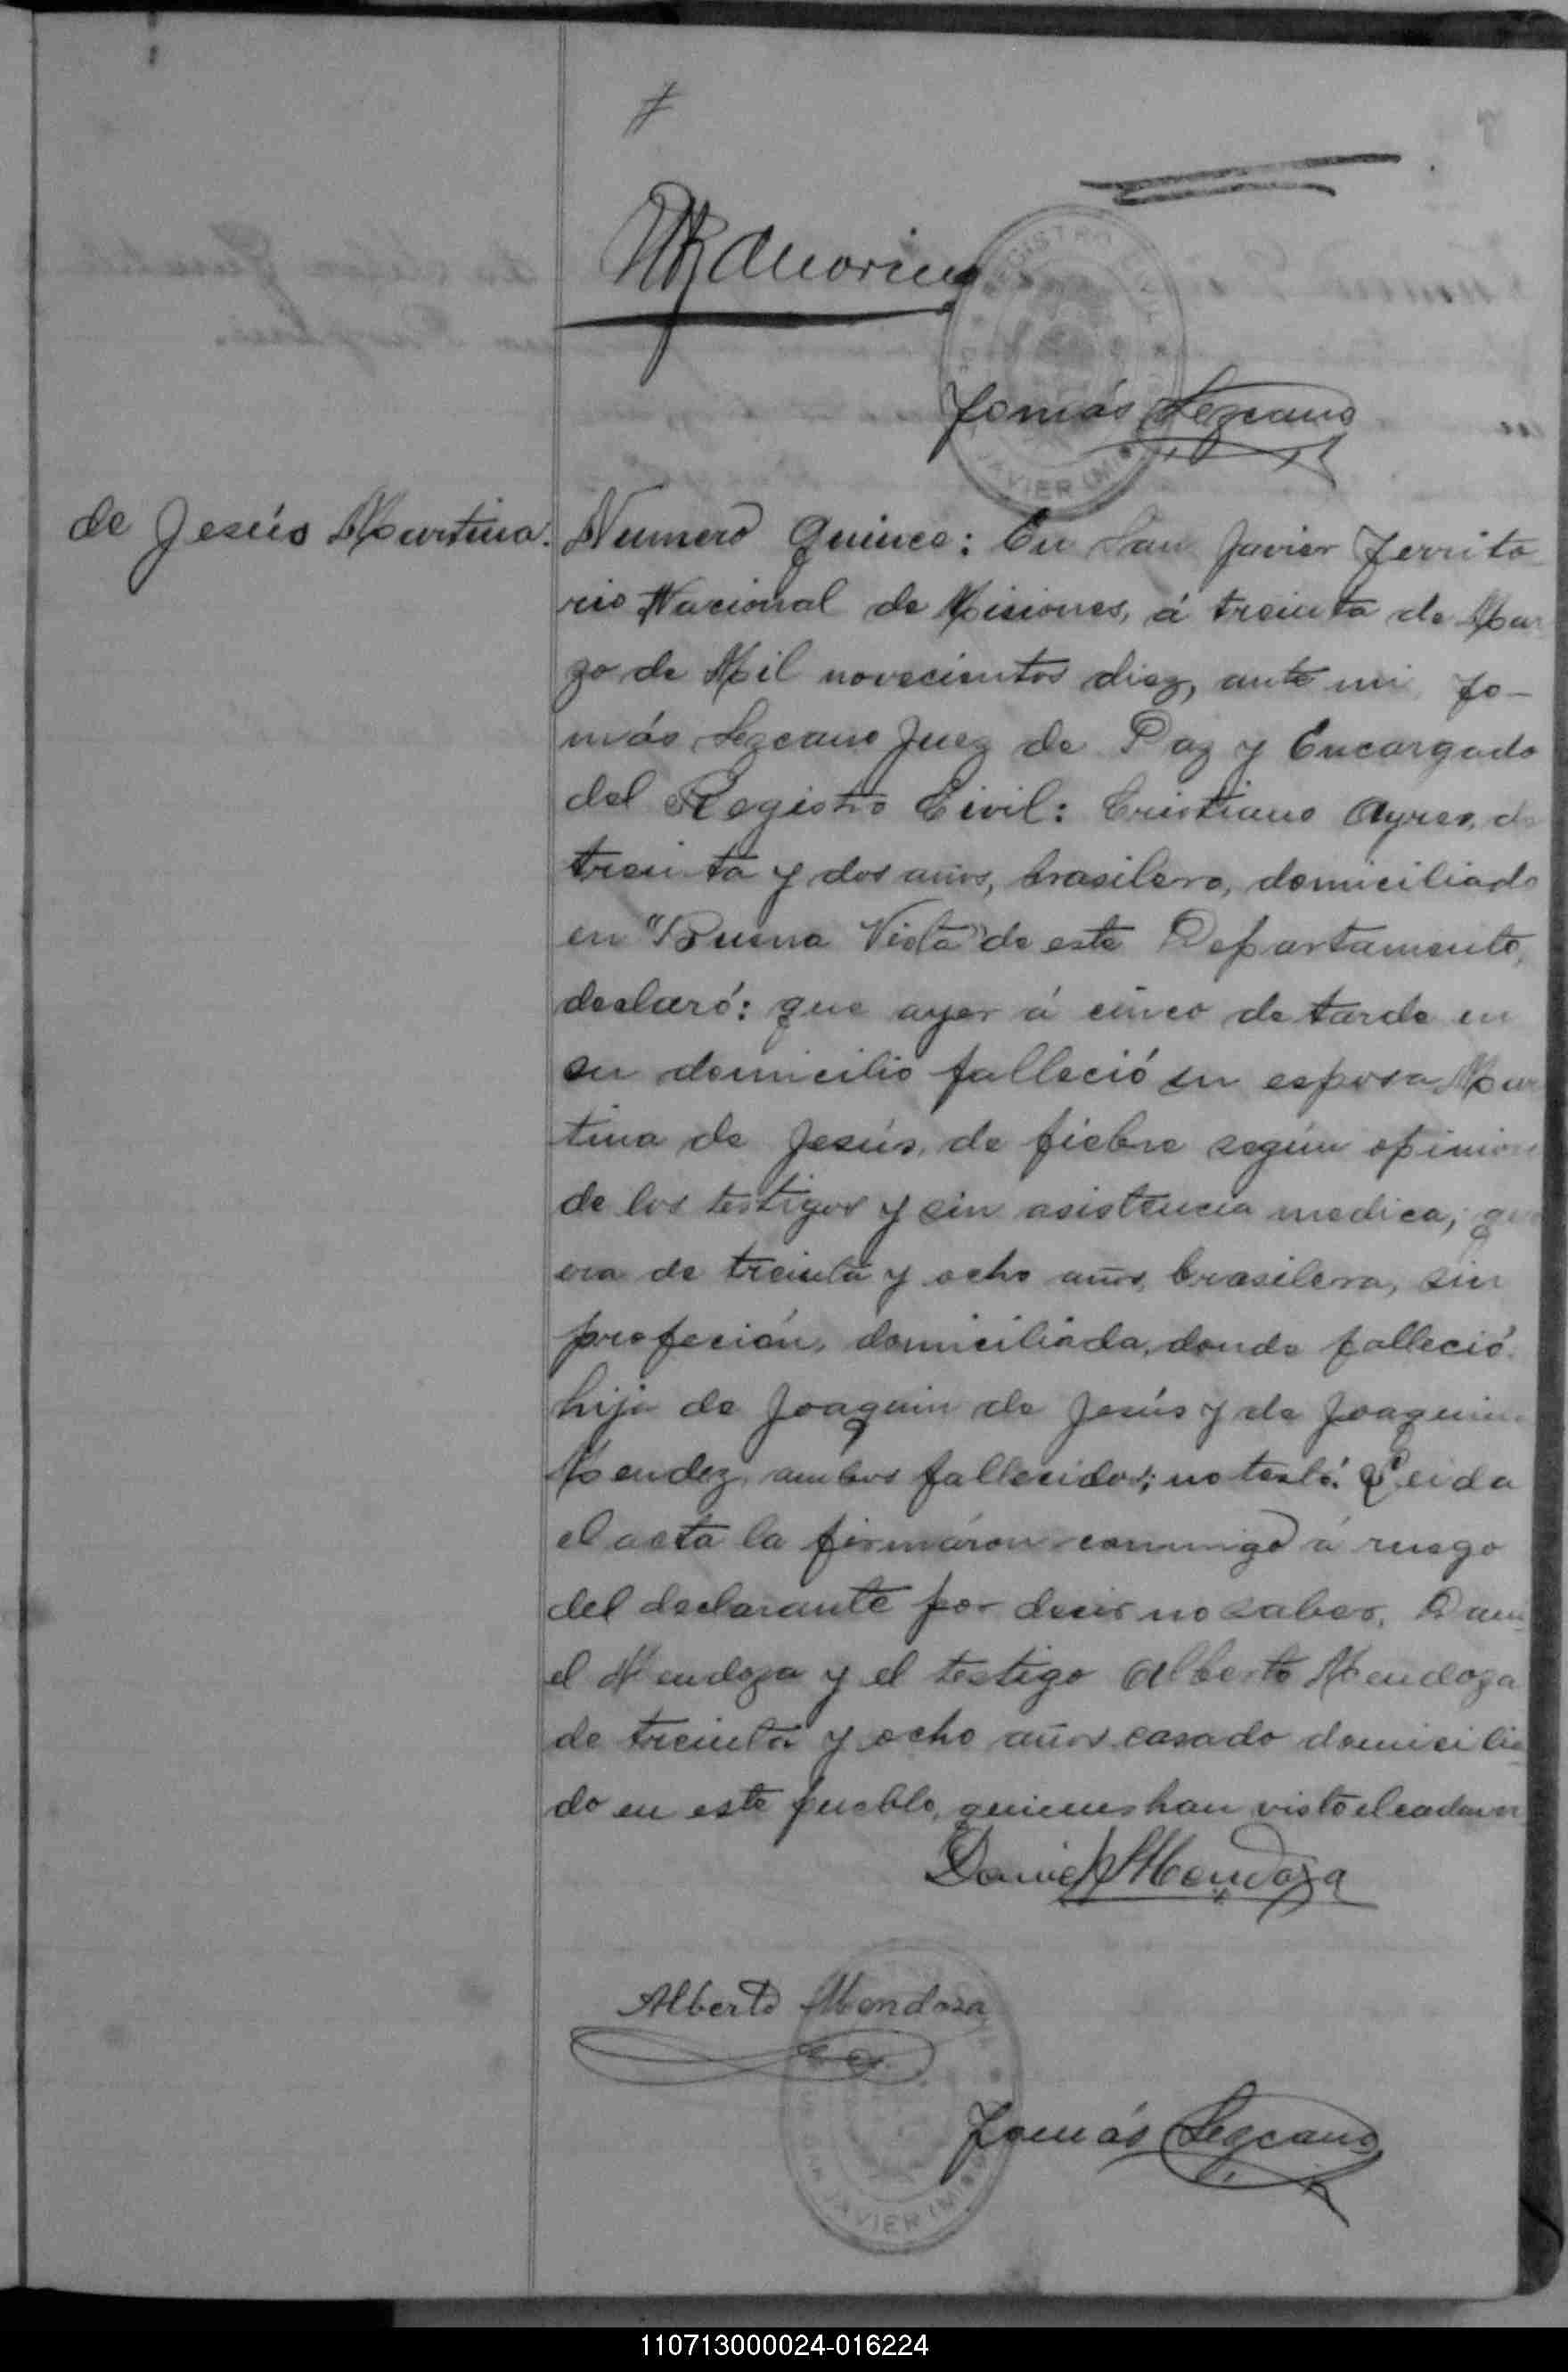 Tomás Lezcano
de Jesús Martina.
Numero Quince: En San Javier Territo
rio Nacional de Misiones, á treinta de Mar
zo de Mil novecientos diez, ante mi, To-
más Lezcano Juez de Paz y Encargado
del Registro Civil: Cristiano Ayres, de
treinta y dos años, brasilero, domiciliado
en "Buena Vista" de este Departamento,
declaró: que ayer á cinco de tarde en
su domicilio falleció su esposa Mar
tina de Jesús, de fiebre según opinion
de los testigos y sin asistencia medica; que
era de treinta y ocho años, brasilera, sin
profeción, domiciliada, donde falleció.
hija de Joaquin de Jesús y de Joaquina
Mendez, ambos fallecidos; no testó. Leida
el acta la firmáron conmigo á ruego
del declarante por decir no saber, Dani
el Mendoza y el testigo Alberto Mendoza
de treinta y ocho años casado domicilia
do en este pueblo, quienes han visto el cadaver
Daniel Mendoza
Alberto Mendoza
Tomás Lezcano
110713000024-016224